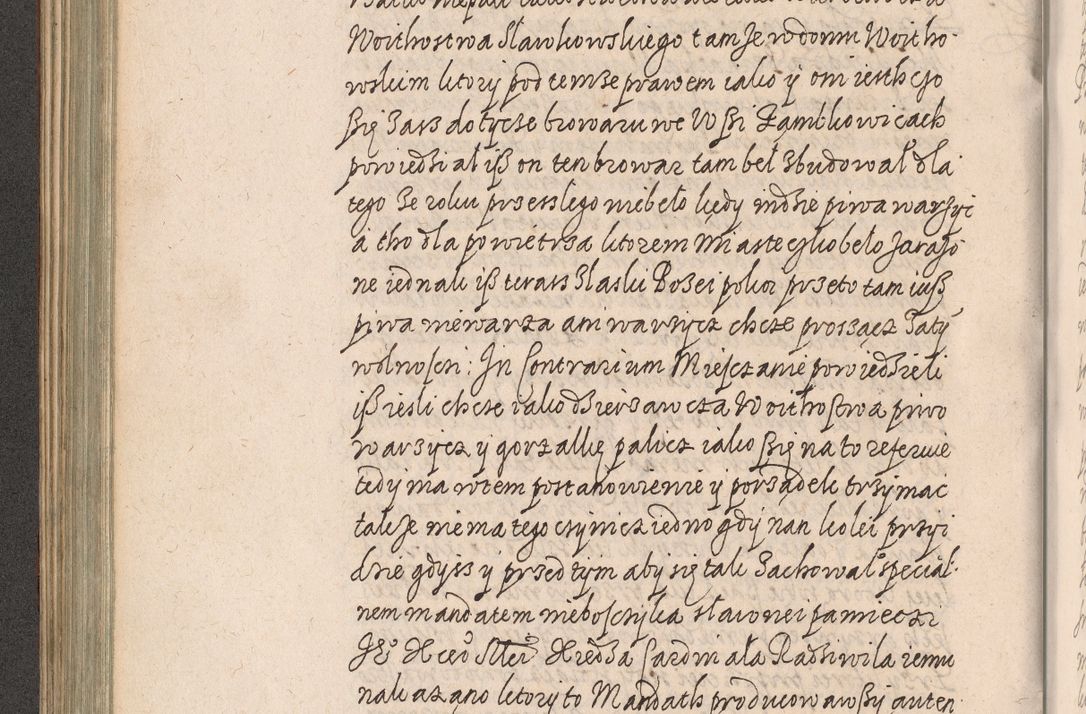 Woithostwa Slawkowskiego tamże w domu Woitho-
wskim ktory pod temże prawem iako y oni iesth czo
ßię zass dotycze browaru we Wßi Ząmbkowicach
powiedzial yß on ten browar tam beł zbudował dla
tego ze roku przesslego niebeło kędy indzie piwa warzyć
a tho dla powietrza ktorem Miasteczko beło zarażo-
ne iednak iß teraz z łaski Bożei pokoi przeto tam iuß
piwa niewarza ani warzycz chcze proszącz za ty
wolnosci: In Contrarium Miesczanie powiedzieli
iß iesli chcze iako dzierzawcza Woithostwa piwo
warzycz y gorzałkę palicz iako ßię na to referuie
tedy ma w tem postanowienie y porządek trzymac
takze nie ma tego czynicz iedno gdy nan kolei przyi
dzie gdyss y przed tym aby się tak zachował special-
nem mandatem nieboszczyka sławonei pamieczi
Kiędza Cardinała Radziwiła iemu
nakazano ktory to Mandath producowawßy auten